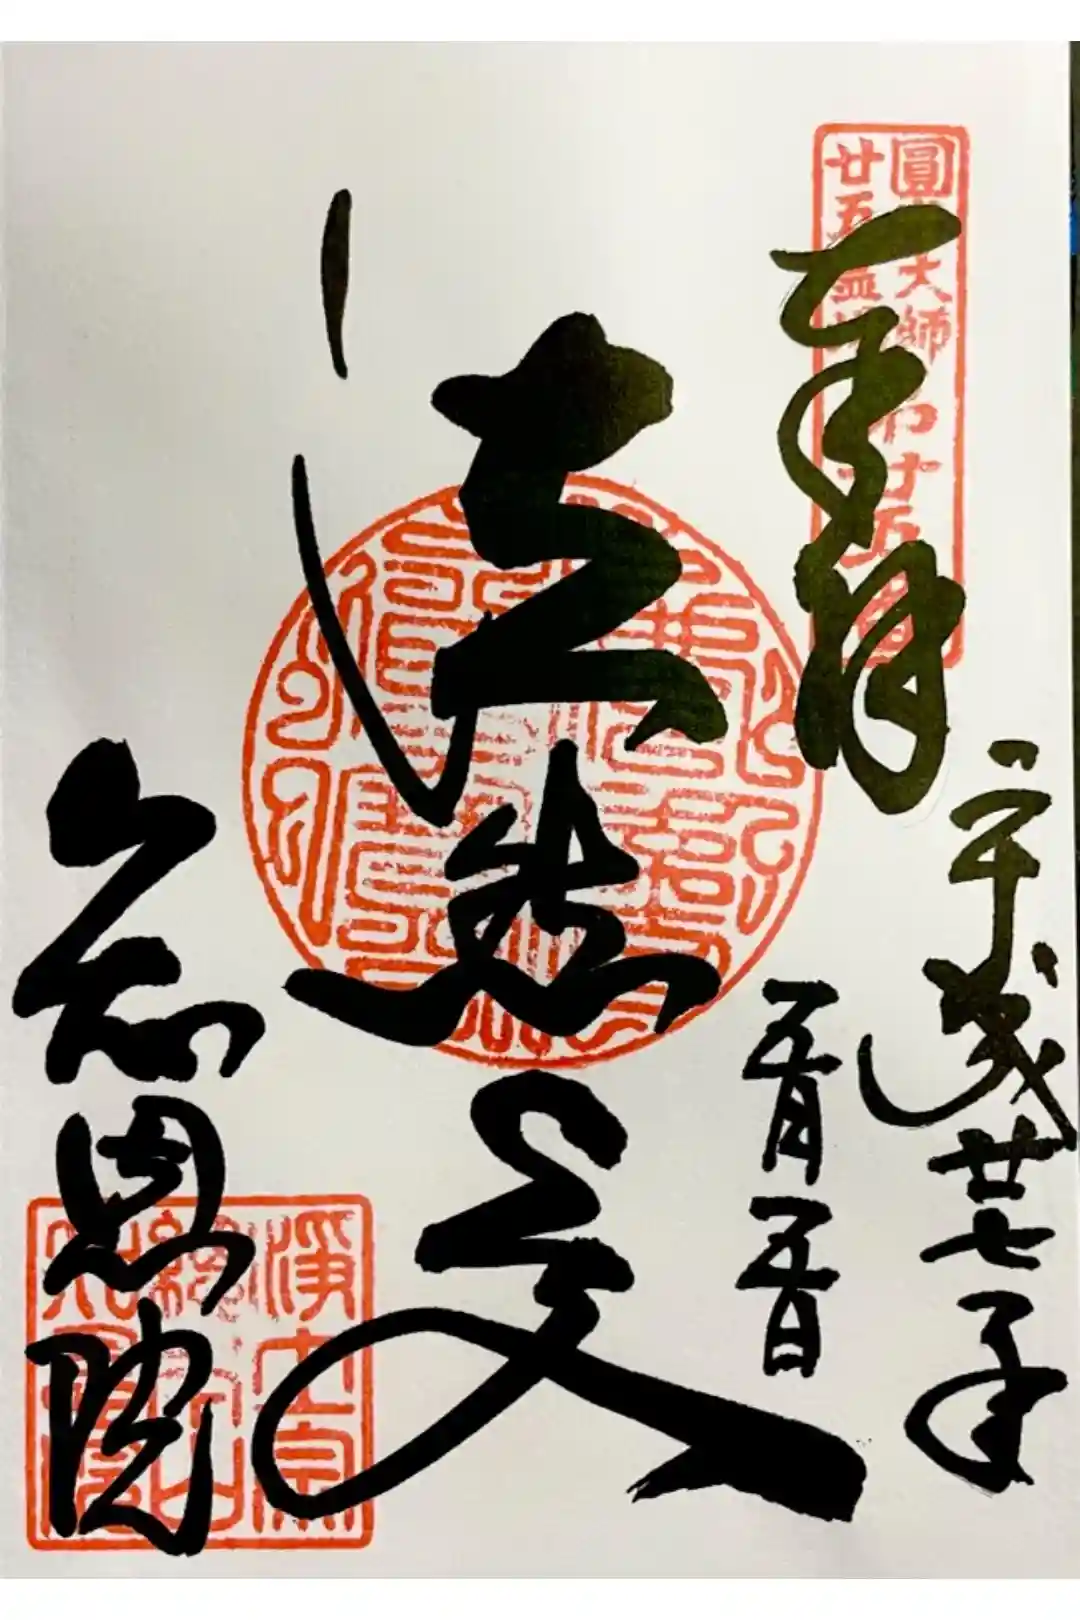 圓光大師
廿五霊場
奉拝
平成廿七年
五月五日
法然上人
知恩院
淨土宗
總本山
知恩院